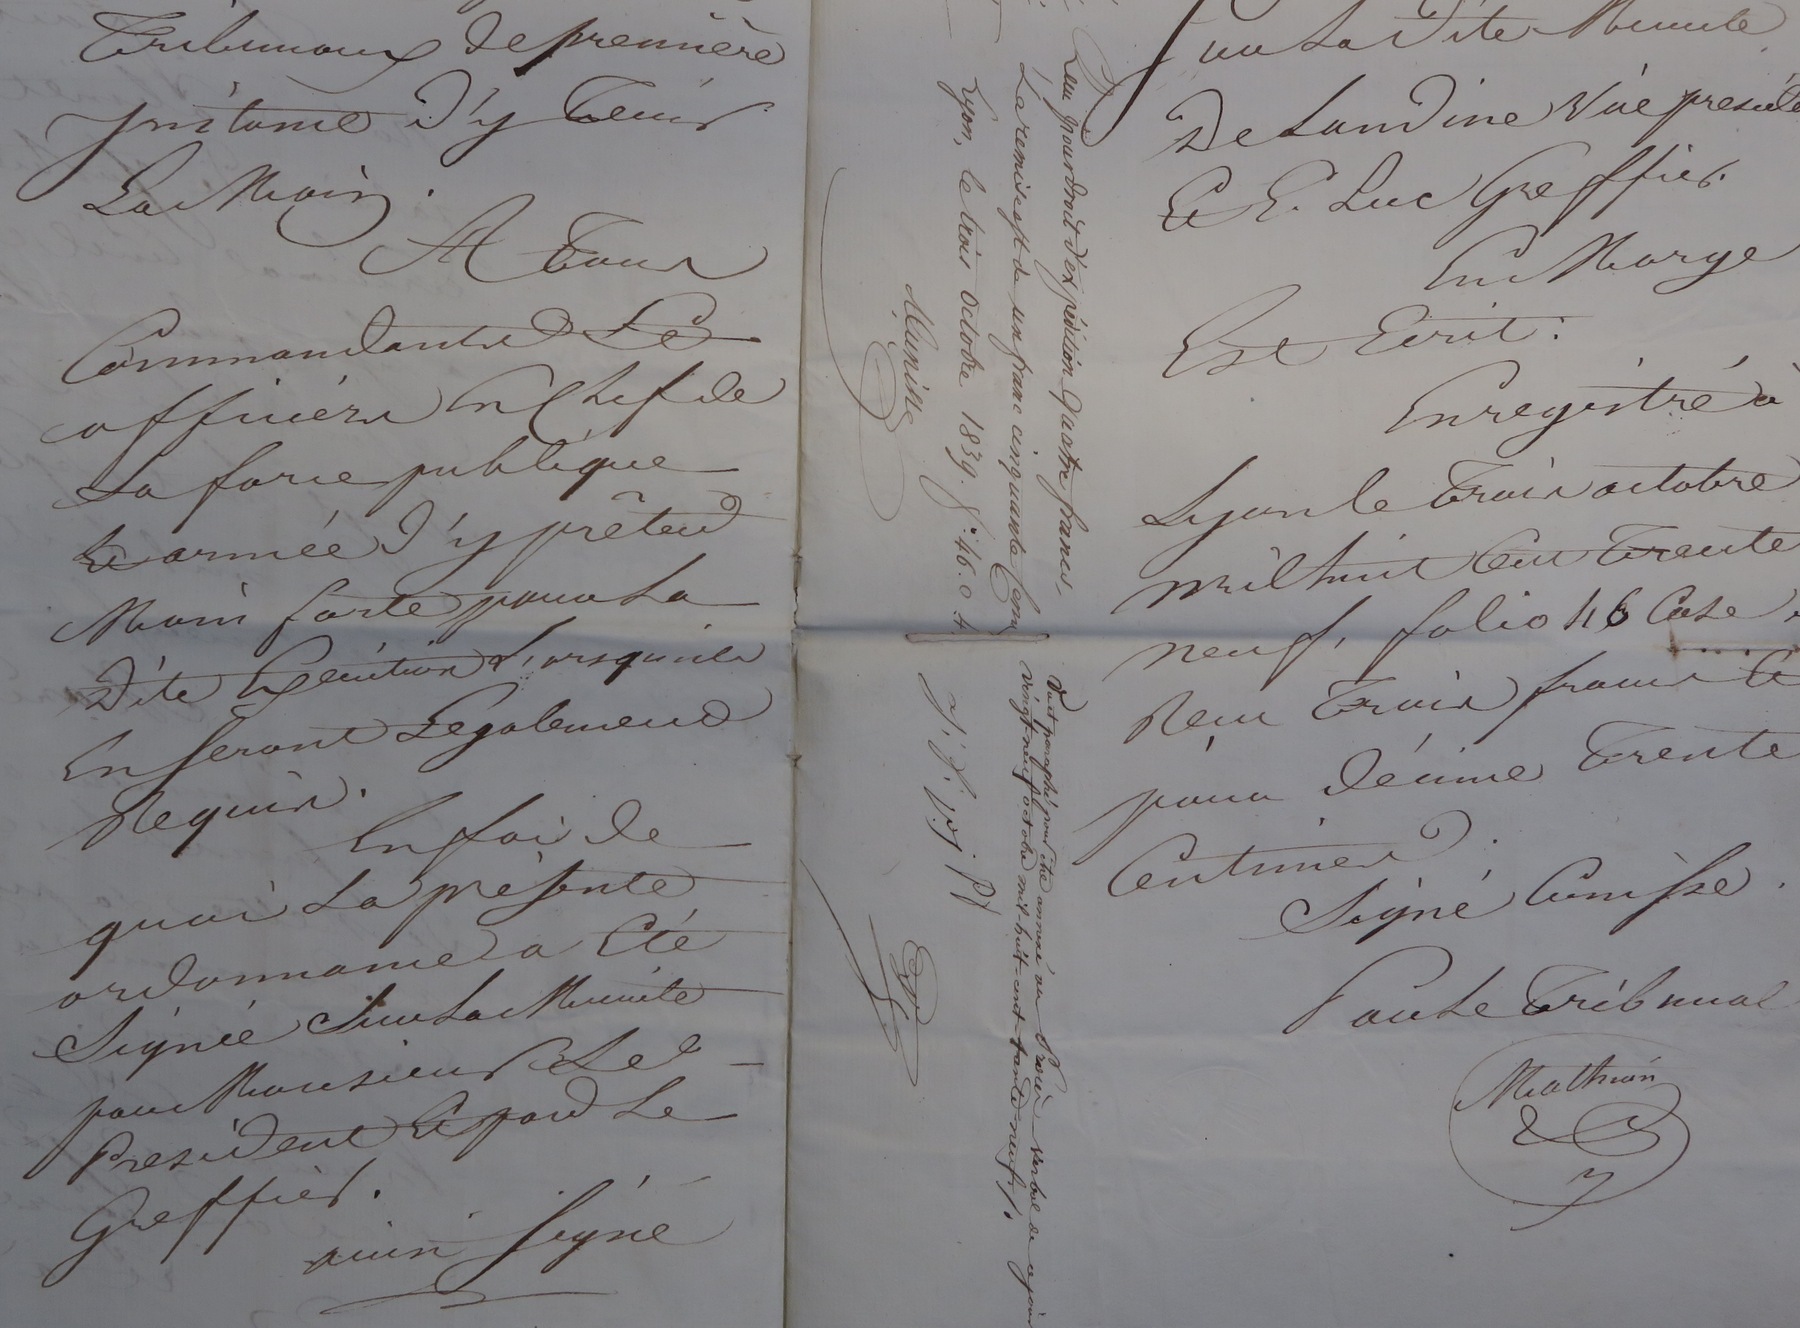 Tribunaux de première
instance d'y tenir
La Main.
A Tous
Commandants et
officiers en chef de
La force publique
et armée d'y prêter
Main forte pour La
dite Exécution Lorsqu'ils
En seront Legalement
Requis.
En foi de
quoi La présente
ordonnance a Eté
Signée Sur La Minute
pour Monsieur Le
President Et par Le
Greffier.
ainsi Signé
Reçu pour droit d'expédition quatre francs.
La remise est de un franc cinquante Cent
Lyon, le trois Octobre 1839. f. 46. c 4.
Visé paraphé pour être annexé au Procès verbal de ce jour
vingt-neuf octobre mil-huit-cent-trente-neuf.
sur La Dite Minute
De Landine Vice president
Et E. Luc Greffier.
En Marge
Est Ecrit:
Enregistré à
Lyon le trois octobre
mil huit Cent trente
neuf, folio 46 Case
Recu trois francs Et
pour décime trente
Centimes.
Signé Cunisse.
Pour Le Tribunal
Mathion